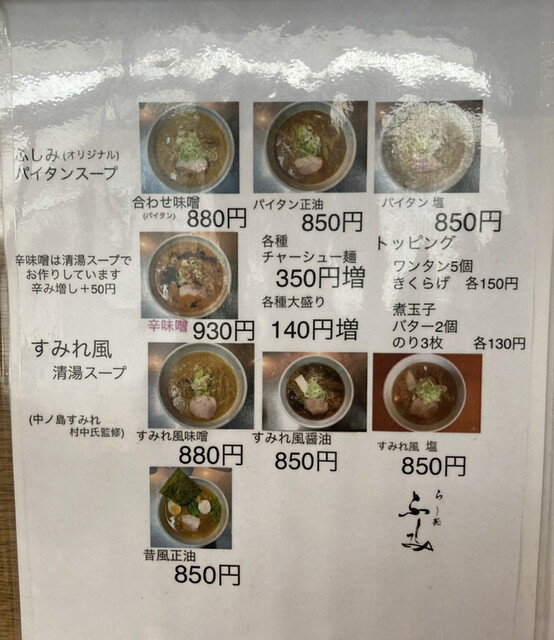 ふしみ(オリジナル)
パイタンスープ
合わせ味噌
(パイタン)
880円
パイタン正油
850円
パイタン 塩
850円
辛味噌は清湯スープで
お作りしています
辛み増し+50円
辛味噌 930円
各種
チャーシュー麺
350円増
各種大盛り
140円増
トッピング
ワンタン5個
きくらげ 各150円
煮玉子
バター2個
のり3枚 各130円
すみれ風
清湯スープ
(中ノ島すみれ
村中氏監修)
すみれ風味噌
880円
すみれ風醤油
850円
すみれ風 塩
850円
昔風正油
850円
らーめん
ふしみ